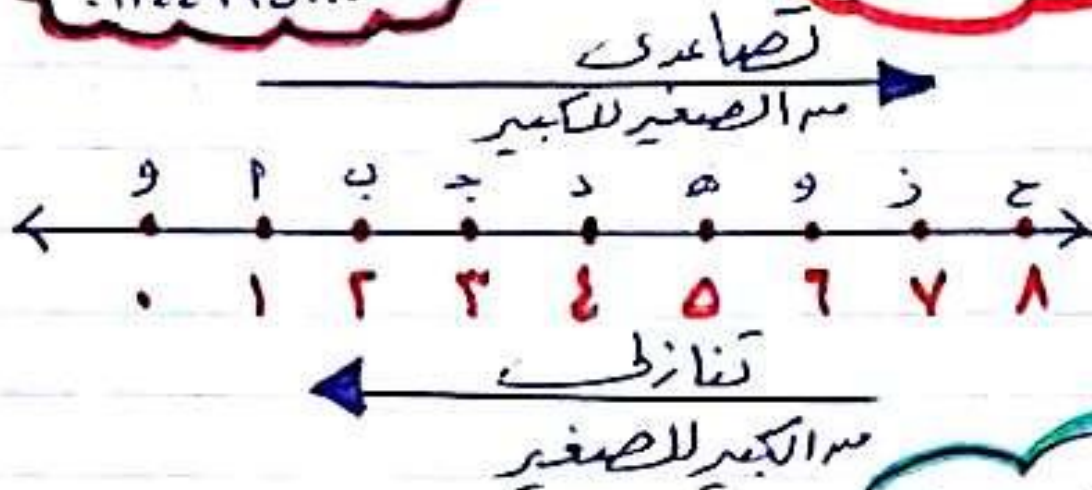 تصاعدى
من الصغير للكبير
و م ب جـ د هـ و ز ح
٠ ١ ٢ ٣ ٤ ٥ ٦ ٧ ٨
تنازلى
من الكبير للصغير